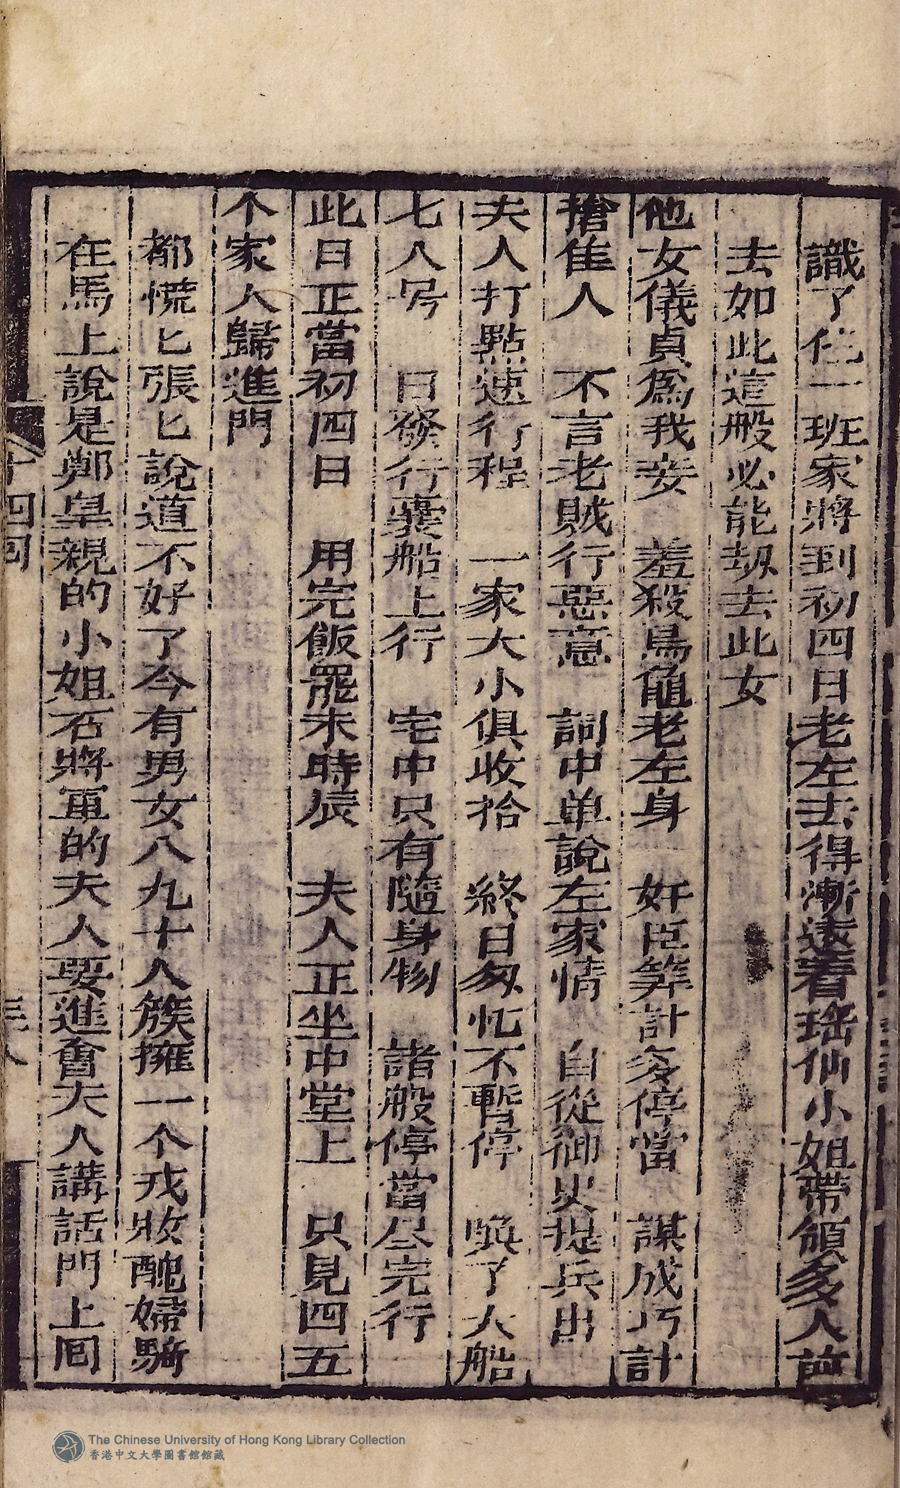 識了住一班家將到初四日老左去得漸遠着瑤仙小姐帶領多人前
去如此這般必能刼去此女
他女儀貞爲我妾　羞殺烏龜老左身　奸臣筭計多停當　謀成巧計
搶佳人　不言老賊行惡意　詞中单說左家情　自從御史提兵出
夫人打點速行程　一家大小俱收拾　終日匆忙不暫停　喚了大船
七八号　日發行囊船上行　宅中只有隨身物　諸般停當尽完行
此日正當初四日　用完飯罷未時辰　夫人正坐中堂上　只見四五
个家人歸進門
都慌匕張匕說道不好了今有男女八九十人簇擁一个戎妝醜婦騎
在馬上說是鄭皇親的小姐石將軍的夫人要進會夫人講話門上囘
十四囘
The Chinese University of Hong Kong Library Collection
香港中文大學圖書館館藏